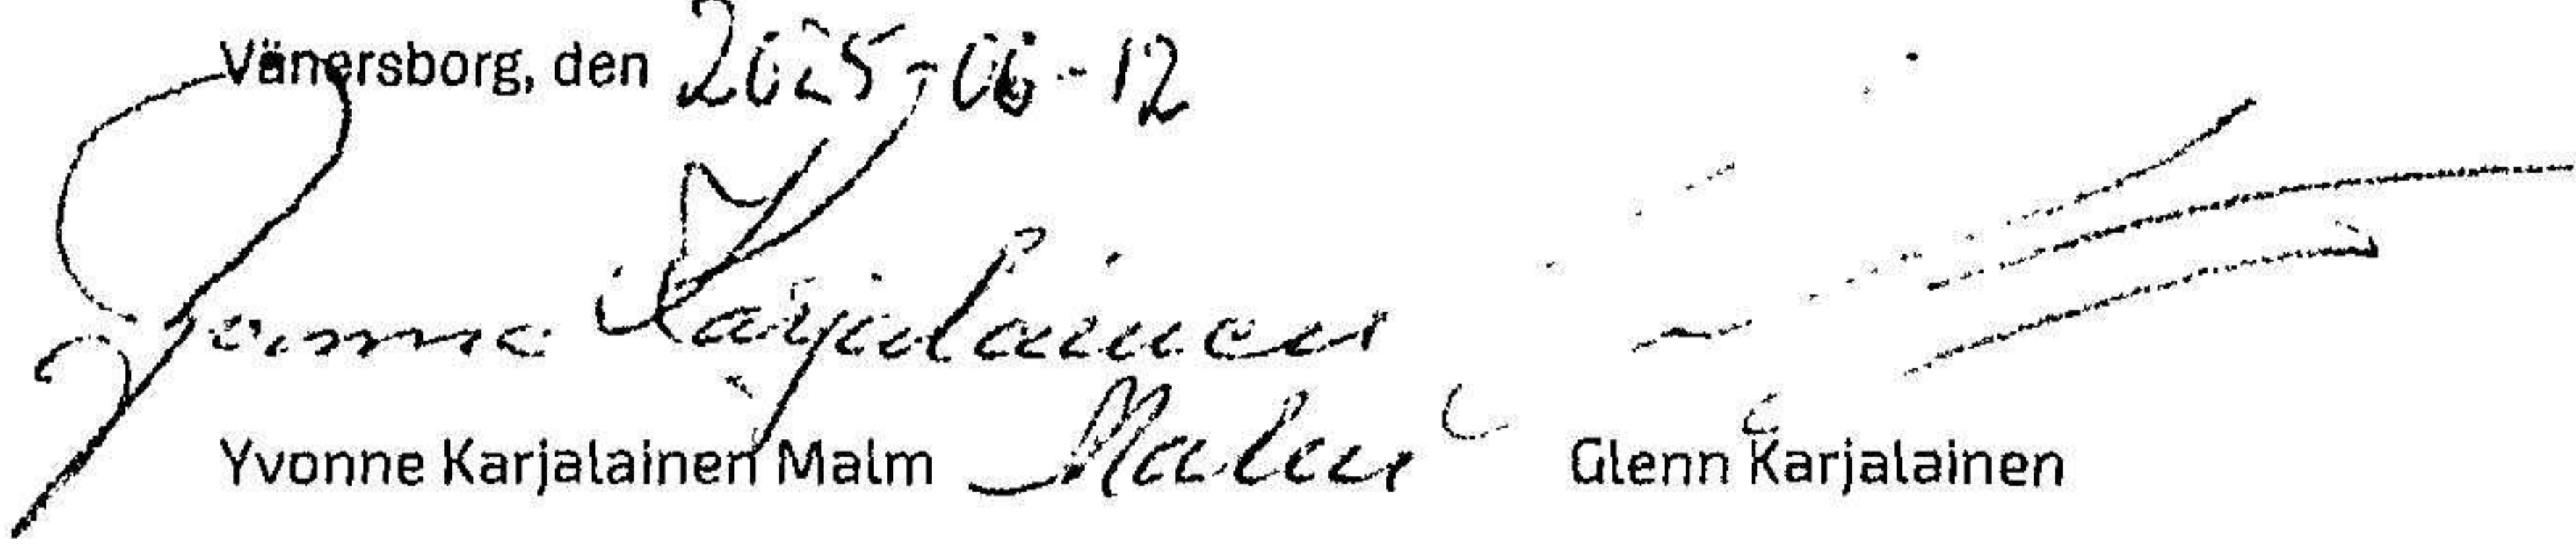 Vänersborg, den 2025-06-12
Yvonne Karjalainen
Malm
Yvonne Karjalainen Malm
Glenn Karjalainen